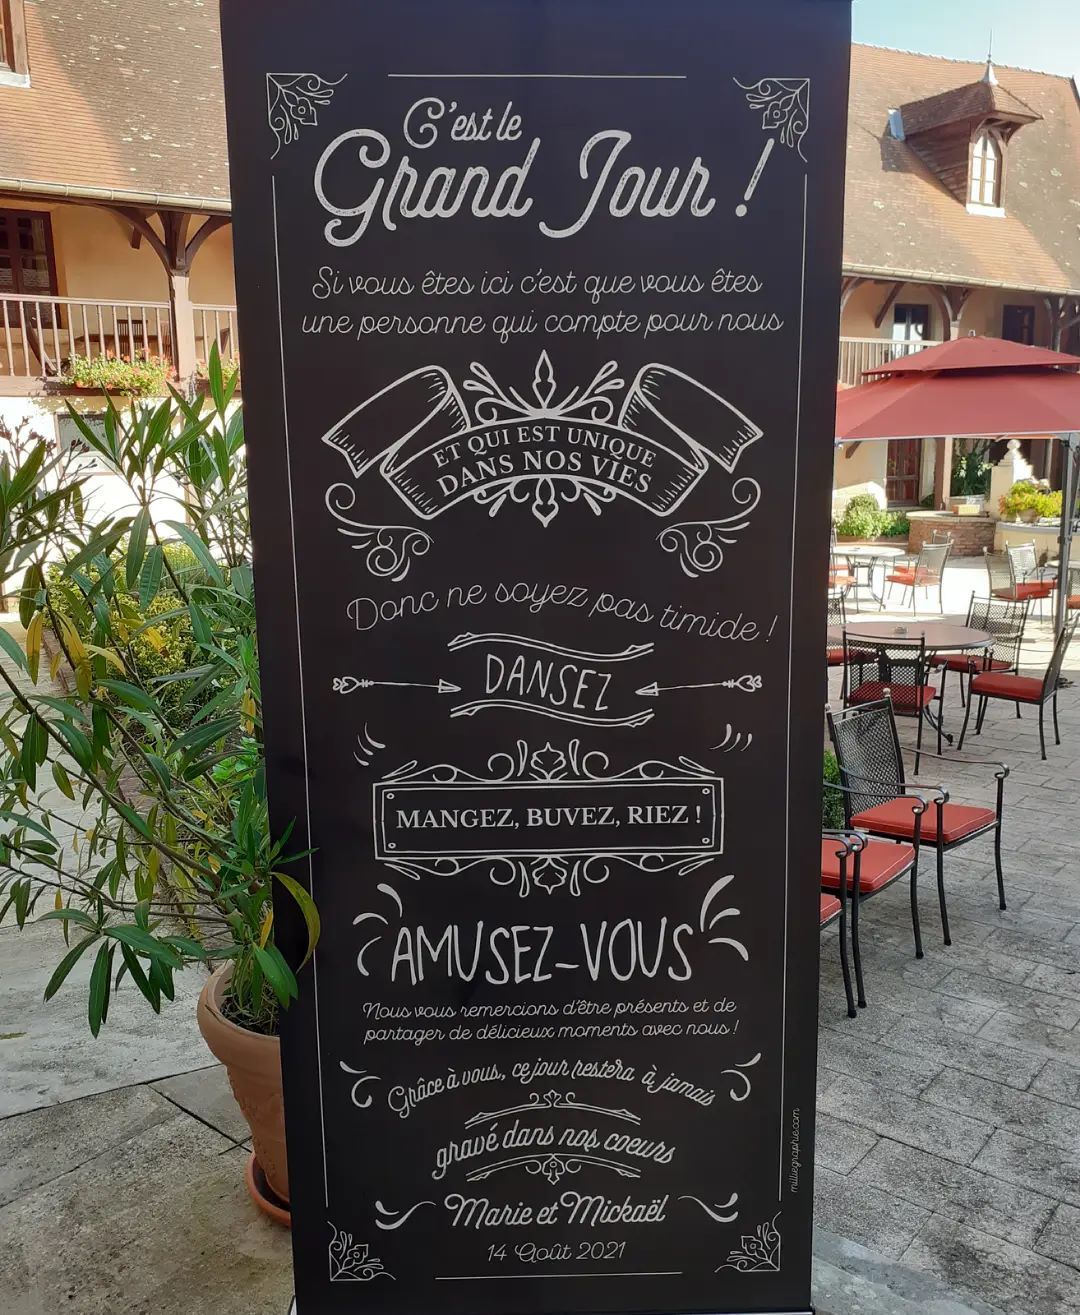 C'est le
Grand Jour !
Si vous êtes ici c'est que vous êtes
une personne qui compte pour nous
ET QUI EST UNIQUE
DANS NOS VIES
Donc ne soyez pas timide !
DANSEZ
MANGEZ, BUVEZ, RIEZ !
AMUSEZ-VOUS
Nous vous remercions d'être présents et de
partager de délicieux moments avec nous !
Grâce à vous, ce jour restera à jamais
gravé dans nos coeurs
Marie et Mickaël
14 Août 2021
milliegraphie.com